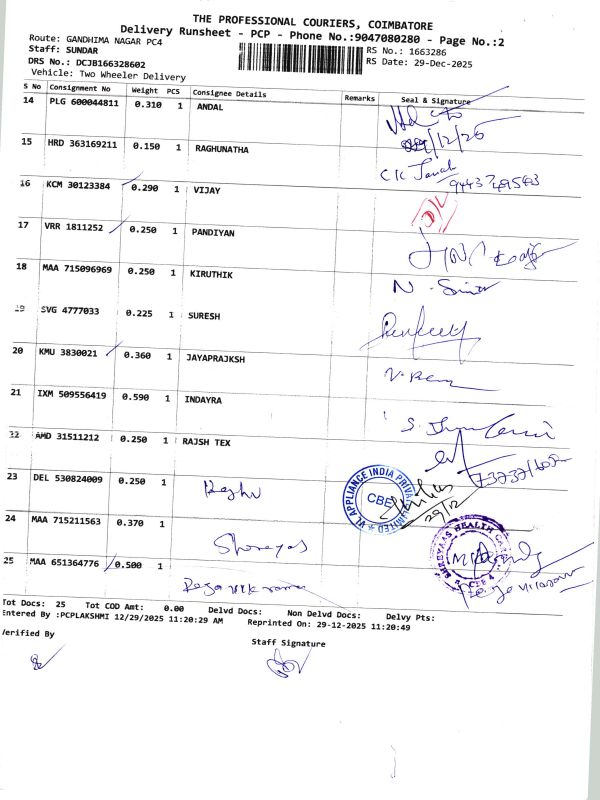 THE PROFESSIONAL COURIERS, COIMBATORE
Delivery Runsheet - PCP - Phone No.:9047080280 - Page No.:2
Route: GANDHIMA NAGAR PC4
RS No.: 1663286
Staff: SUNDAR
RS Date: 29-Dec-2025
DRS No.: DCJB166328602
Vehicle: Two Wheeler Delivery
S No Consignment No Weight PCS Consignee Details Remarks Seal & Signature
14 PLG 600044811 0.310 1 ANDAL
15 HRD 363169211 0.150 1 RAGHUNATHA
16 KCM 30123384 0.290 1 VIJAY
17 VRR 1811252 0.250 1 PANDIYAN
18 MAA 715096969 0.250 1 KIRUTHIK
19 SVG 4777033 0.225 1 SURESH
20 KMU 3830021 0.360 1 JAYAPRAJKSH
21 IXM 509556419 0.590 1 INDAYRA
22 AMD 31511212 0.250 1 RAJSH TEX
23 DEL 530824009 0.250 1 Raghu
VL APPLIANCE INDIA PRIVATE LIMITED
CBE
29/12
24 MAA 715211563 0.370 1 Shreyas
SHREYAAS HEALTH
25 MAA 651364776 0.500 1
Tot Docs: 25 Tot COD Amt: 0.00 Delvd Docs: Non Delvd Docs: Delvy Pts:
Entered By :PCPLAKSHMI 12/29/2025 11:20:29 AM Reprinted On: 29-12-2025 11:20:49
Verified By
Staff Signature